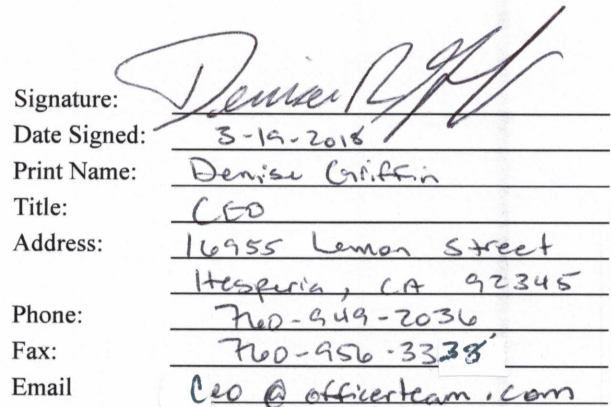 Signature: Denise R Griffin
Date Signed: 3-19-2018
Print Name: Denise Griffin
Title: CEO
Address: 16955 Lemon Street
Hesperia, CA 92345
Phone: 760-949-2036
Fax: 760-956-3338
Email Ceo @ officerteam.com